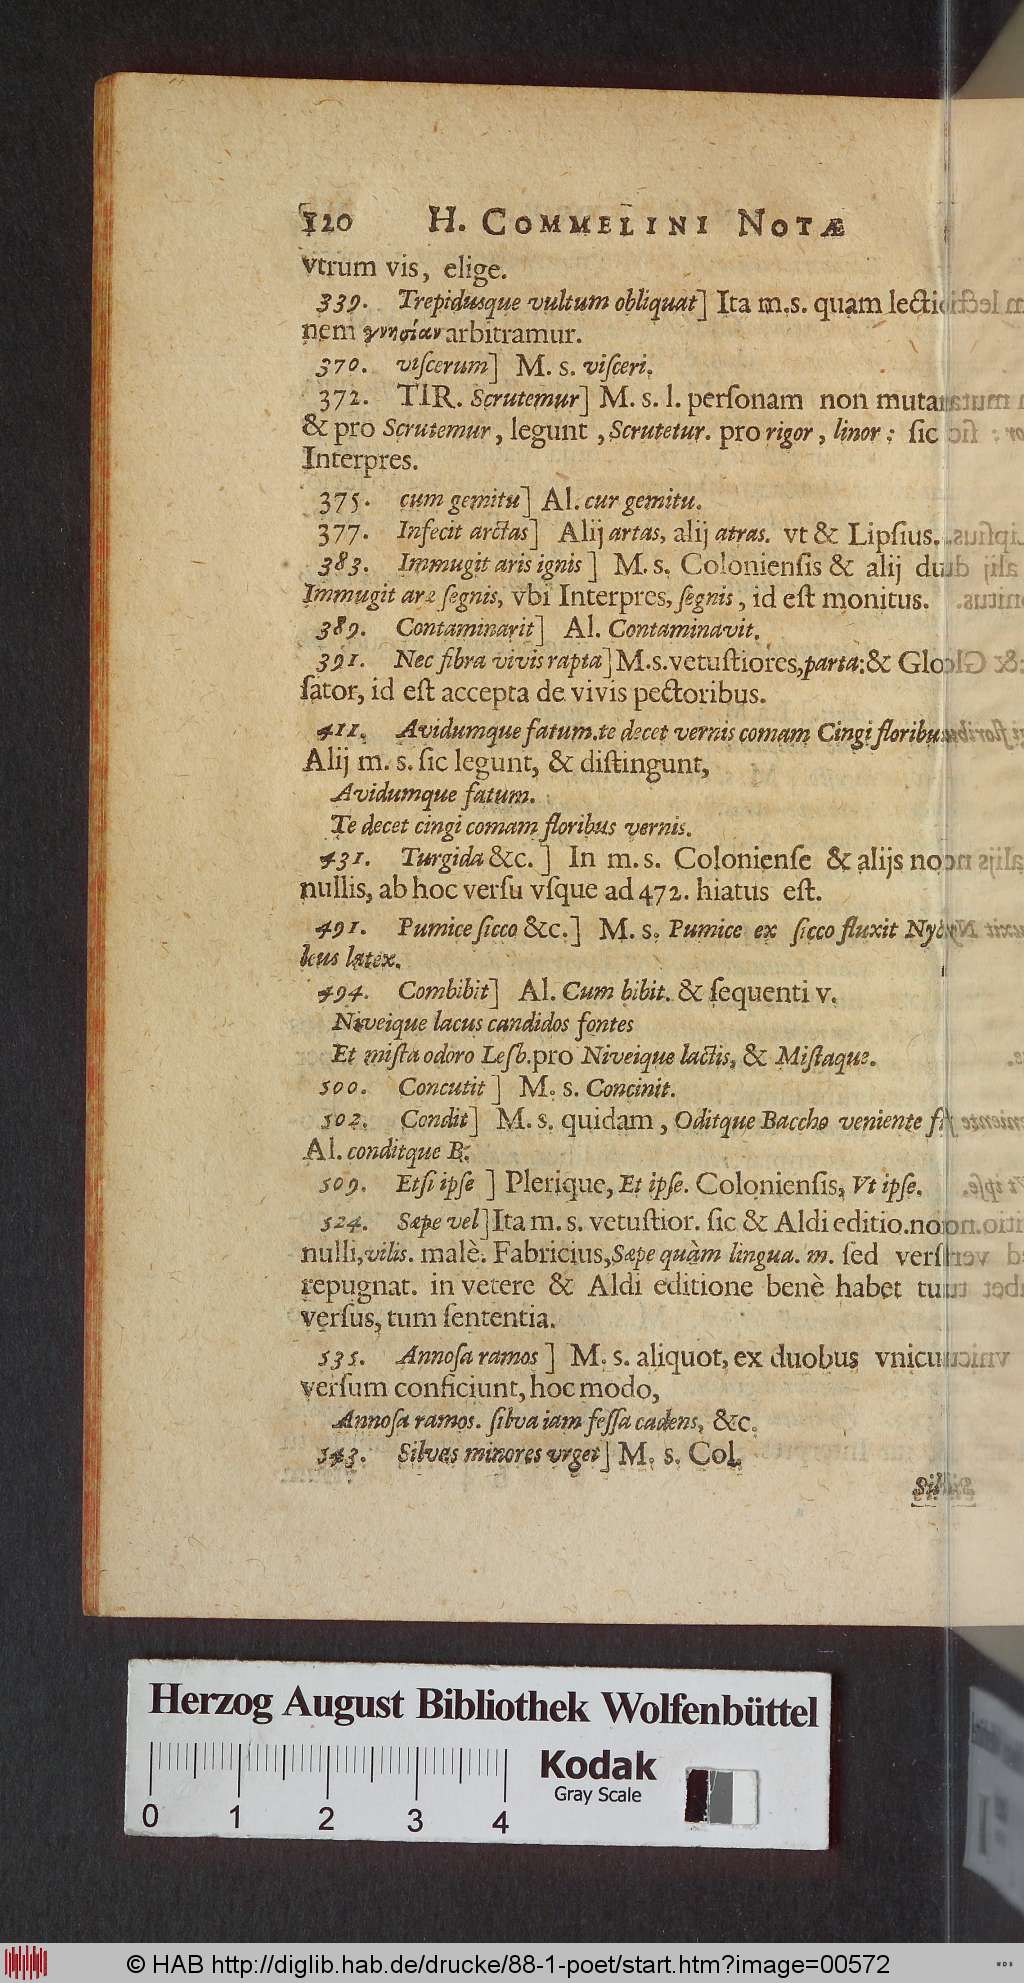 120 H. COMMELINI NOTÆ
vtrum vis, elige.
339. Trepidusque vultum obliquat] Ita m.s. quam lectio
nem γνησίαν arbitramur.
370. viſcerum] M. s. viſceri.
372. TIR. Scrutemur] M. s. l. perſonam non mutat
& pro Scrutemur, legunt, Scrutetur. pro rigor, linor: ſic
Interpres.
375. cum gemitu] Al. cur gemitu.
377. Infecit arctas] Alij artas, alij atras. vt & Lipſius.
383. Immugit aris ignis] M. s. Colonienſis & alij duo
Immugit aræ ſegnis, vbi Interpres, ſegnis, id eſt monitus.
389. Contaminarit] Al. Contaminavit.
391. Nec fibra vivis rapta] M.s.vetuſtiores, parta: & Gloſ
ſator, id eſt accepta de vivis pectoribus.
411. Avidumque fatum.te decet vernis comam Cingi floribus
Alij m. s. ſic legunt, & diſtingunt,
Avidumque fatum.
Te decet cingi comam floribus vernis.
431. Turgida &c.] In m.s. Colonienſe & alijs non
nullis, ab hoc verſu vſque ad 472. hiatus eſt.
491. Pumice ſicco &c.] M. s. Pumice ex ſicco fluxit Nyc
leus latex.
494. Combibit] Al. Cum bibit. & ſequenti v.
Niveique lacus candidos fontes
Et miſta odoro Leſb. pro Niveique lactis, & Miſtaque.
500. Concutit] M. s. Concinit.
502. Condit] M. s. quidam, Oditque Baccho veniente
Al. conditque B.
509. Etſi ipſe] Plerique, Et ipſe. Colonienſis, Vt ipſe.
524. Sæpe vel] Ita m. s. vetuſtior. ſic & Aldi editio. non
nulli, vilis. malè. Fabricius, Sæpe quàm lingua. m. ſed verſ
repugnat. in vetere & Aldi editione benè habet tum
verſus, tum ſententia.
535. Annoſa ramos] M. s. aliquot, ex duobus vnicum
verſum conficiunt, hoc modo,
Annoſa ramos. ſilva iam feſſa cadens, &c.
543. Silvas minores vrget] M. s. Col.
Herzog August Bibliothek Wolfenbüttel
0 1 2 3 4
Kodak
Gray Scale
© HAB http://diglib.hab.de/drucke/88-1-poet/start.htm?image=00572